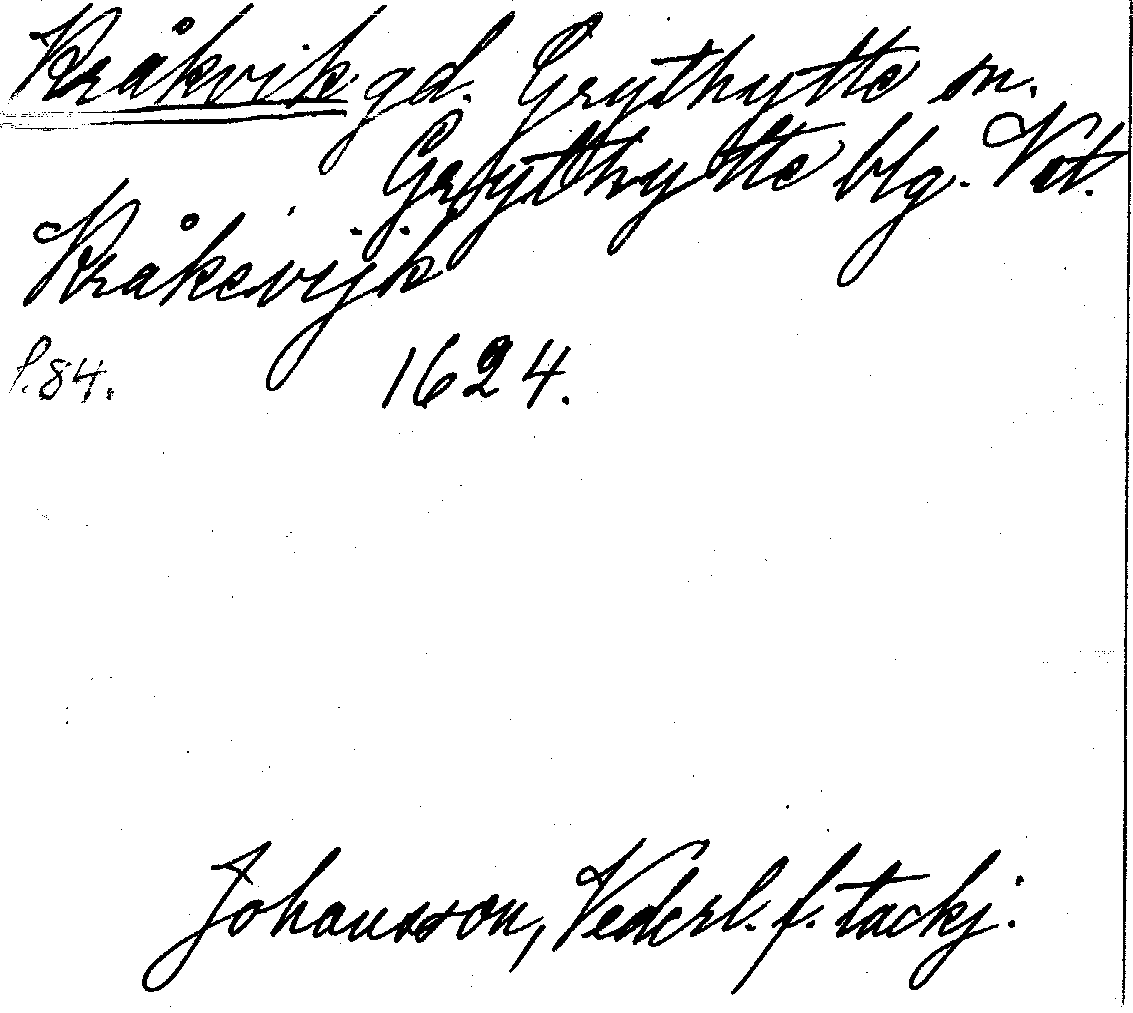 Kråkvik gd. Grythytte sn.
Grythytte blg. Vstl.
Kråkevijk
s. 84. 1624.
Johansson, Vederl. f. tackj.